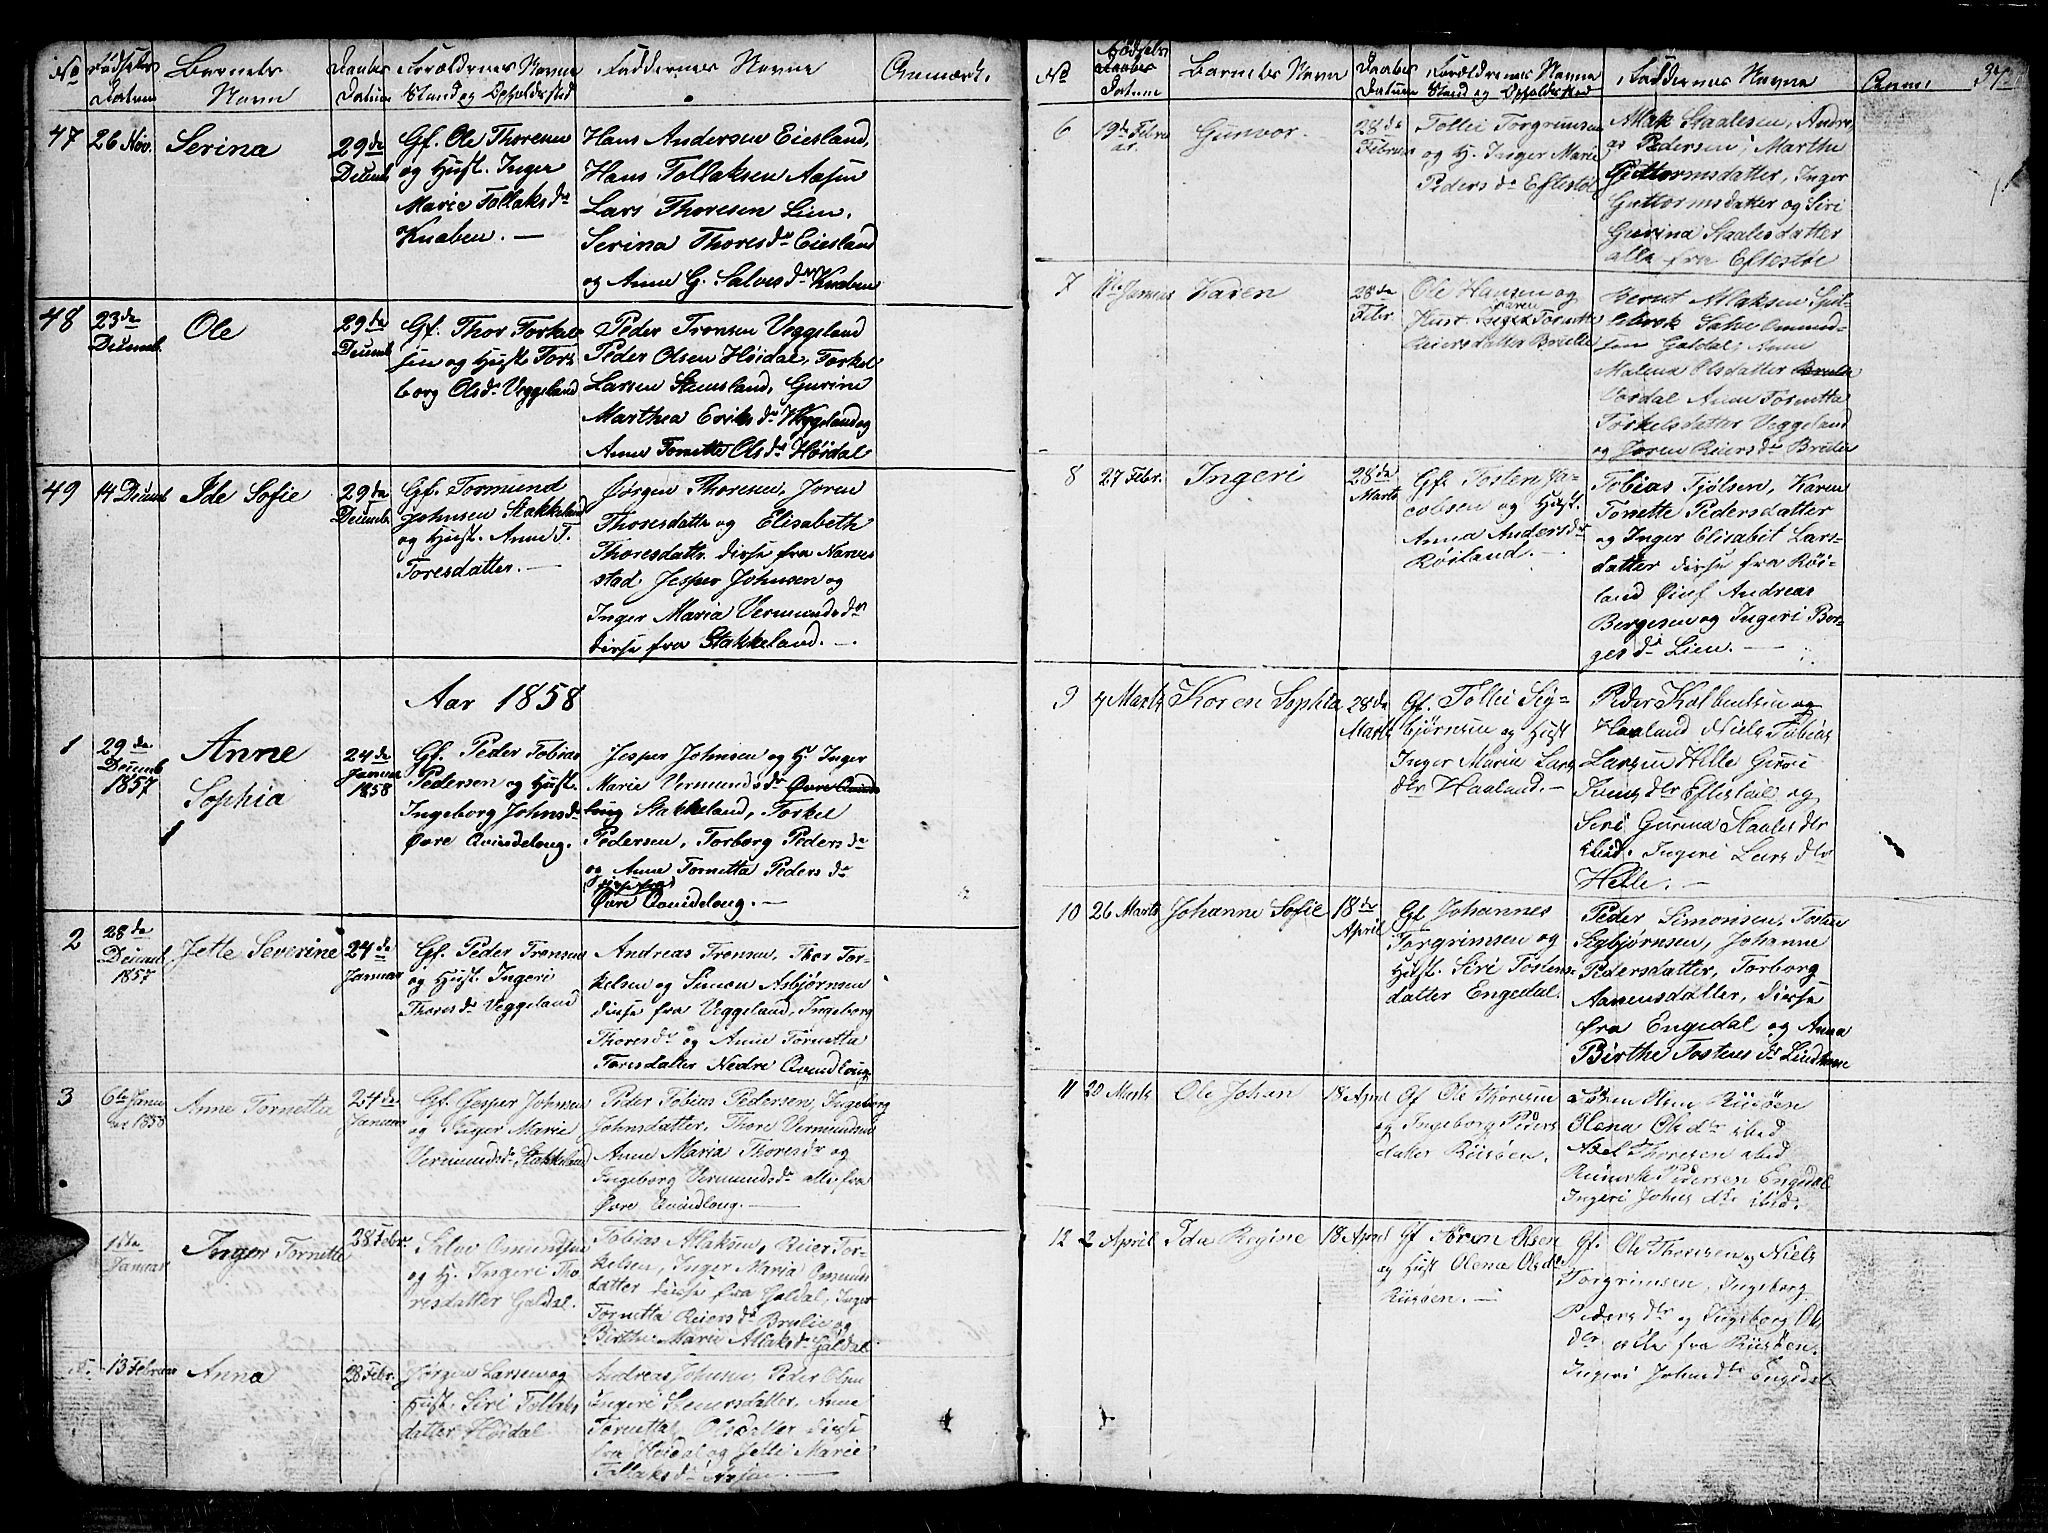 No
Fødsels
Datum
Barnets
Navn
Daabs
Datum
Forældrenes Navne
Stand og Opholdssted
Faddernes Navne
Anmærk.
47
26 Nov.
Serina
29de
Decemb
Gf. Ole Thoresen
og Hust. Inger
Marie Tollaksdr
Knaben. —
Hans Andersen Eiesland,
Hans Tollaksen Aasen
Lars Thoresen Lien,
Serina Thoresdr Eiesland
og Anne G. Salvesdr Knaben
48
23de
Decemb.
Ole
29de
Decemb
Gf. Thor Torkel
sen og Hust. Tor
borg Olsdr Veggeland
Peder Tronsen Veggeland
Peder Olsen Høidal, Torkel
Larsen Steensland, Gurine
Marthea Eriksdr Veggeland og
Anne Tonette Olsdr Høidal
49
14 Decemb
Ide Sofie
29de
Decemb.
Gf. Tormund
Johnsen Stakkeland
og Hust. Anne T.
Toresdatter. —
Jørgen Thoresen, Joren
Thoresdattr og Elisabeth
Thoresdattr. disse fra Narve
stad, Jesper Johnsen og
Inger Maria Vermundsdr
disse fra Stakkeland. —
Aar 1858
1
29de
Decemb
1857
Anne
Sophia
24de
Januar
1858
Gf. Peder Tobias
Pedersen og Hust.
Ingeborg Johnsdr
Øvre Qvindelong.
Jesper Johnsen og H. Inger
Marie Vermundsdr Øvre Qvinde
long Stakkeland, Torkel
Pedersen, Torborg Pedersdr
og Anne Tornetta Pedersdr
disse fra
Øvre Qvindelong. —
2
28de
Decemb.
1857
Jette Severine
24de
Januar
Gf. Peder Tronsen
og Hust. Ingeri
Thoresdr Veggeland
Andreas Tronsen, Thor Tor-
kelsen og Simon Asbjørnsen
disse fra Veggeland, Ingeborg
Thoresdr og Anne Tornetta
Toresdatter Nedre Qvindlong.
3
6te Janu
ar 1858
Anne Tornette
24de
Januar
Gf. Jesper Johnsen
og Inger Marie
Vermundsdr. Stakkeland
Peder Tobias Pedersen, Ingeborg
Johnsdatter, Thore Vermundsen
Anne Maria Thoresdr og
Ingeborg Vermundsdr alle fra
Øvre Qvindlong. —
1ste
Januar
Inger Tornette
28 Febr.
Salve Omundsen
og H. Ingeri Tho
resdatter Galdal.
Tobias Aslaksen, Reier Tor-
kelsen, Inger Maria Omunds
datter disse fra Galdal, Inger
Tornetta Reiersdr Brulie og
Birthe Marie Aslaksdr Galdal
13 Februar
Anna
28 Febr.
Jørgen Larsen og
Hust. Siri Tollaks
datter Høidal
Andreas Johnsen, Peder Olsen
Ingeri Steenersdatter, Anne
Tornetta Olsdatter disse
fra Høidal og Jette Marie
Tollaksdr Aasen. —
No
Fødsels
Daabs
Datum
Barnets Navn
Daabs
Datum
Forældrenes Navne
Stand og Opholdssted
Faddernes Navne
Anm:
37
6
19de Febru
ar.
Gunvor.
28de
Februar
Tollei Torgrimsen
og H. Inger Marie
Pedersdr Eftestøl
Aslak Staalesen, Andre
as Pedersen, Marthe
Guttormsdatter, Inger
Guttormsdatter og Siri
Gurina Staalesdatter
alle fra Eftestøl
7
Januar
Karen
28de
Febr.
Ole Hansen og
Karen
Hust. Inger Tornette
Reiersdatter Brulie
Bernt Aslaksen
Salve Omund-
sen Galdal, Anne
Malena Olsdatter Brulie
Anne Tornetta
Torkelsdatter Veggeland
og Joren Reiersdr Brulie
8
27 Febr.
Ingeri
28de
Marts
Gf. Tosten Ja-
cobsen og Hust.
Anna Andersdr
Røiland. —
Tobias Tjølsen, Karen
Tonette Pedersdatter
og Inger Elisabit Lars-
datter disse fra Røi-
land Andreas
Bergesen og Ingeri Bor-
gesdr Lien. —
9
4 Marts
Koren Sophia
28de
Marts
Gf. Tollei Sig-
bjørnsen og Hust
Inger Maria Lars
dtr Haaland. —
Peder Kolbentsen og
Haaland Niels Tobias
Larsen Helle Guri
dtr Eftestøl og
Siri Gurina Staalesdtr
ibid. Ingeri Larsdtr
Helle. —
10
26 Marts
Johanne Sofie
18de
April
Gf Johannes
Torgrimsen og
Hust. Siri Tostens-
datter Engedal.
Peder Simonsen, Tosten
Sigbjørnsen, Johanne
Pedersdatter, Torborg
Aanensdatter, disse
fra Engedal og Anna
Birthe Tostensdr
11
20 Marts
Ole Johan
18 April
Gf Ole Thoresen
og Ingeborg Peders
datter Riisøen.
Søren Olsen Riisøen
Olena Olsdtr ibid
Axel Thoresen ibid
Pedersen Engedal
Ingeri Johnsdtr ibid.
12
2 April
Ida Regine
18 April
Gf Søren Olsen
og Hust Olena Olsdtr
Riisøen. —
Gf. Ole Thoresen og Niels
Torgrimsen, Ingeborg
Pedersdtr og Ingeborg Ols
dtr alle fra Riisøen.
Ingeri Johnsdtr Engedal